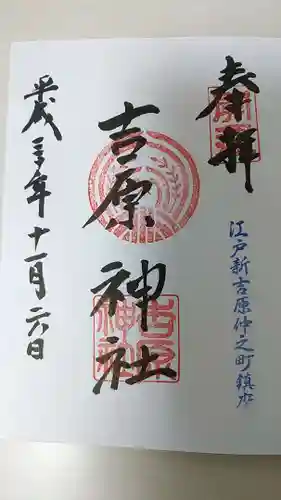 奉拝
江戸新吉原仲之町鎮守
吉原神社
平成三十年十一月六日